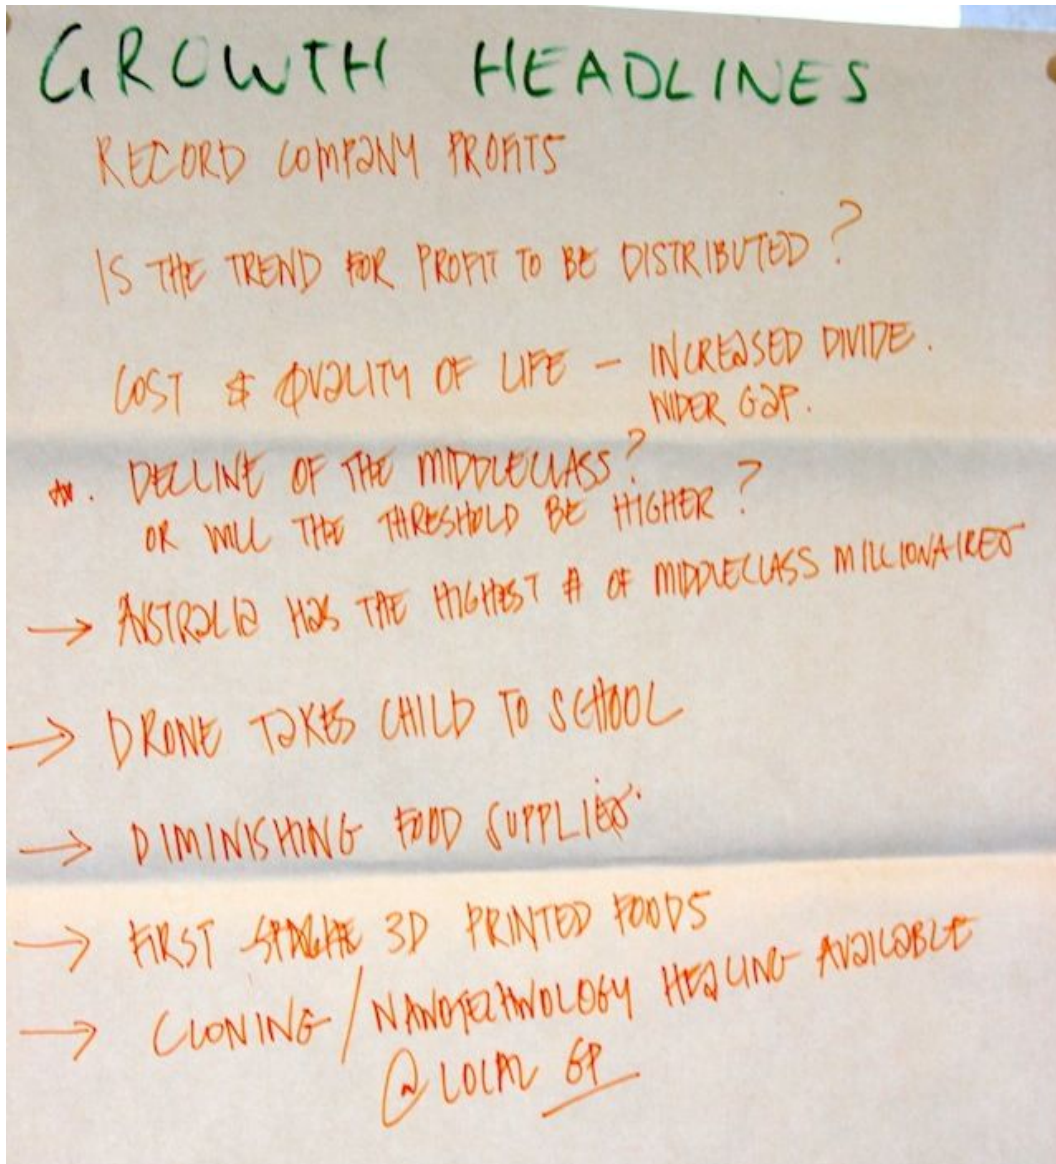 GROWTH HEADLINES
RECORD COMPANY PROFITS
IS THE TREND FOR PROFIT TO BE DISTRIBUTED?
COST & QUALITY OF LIFE – INCREASED DIVIDE.
WIDER GAP.
DECLINE OF THE MIDDLECLASS?
OR WILL THE THRESHOLD BE HIGHER?
→ AUSTRALIA HAS THE HIGHEST # OF MIDDLECLASS MILLIONAIRES
→ DRONE TAKES CHILD TO SCHOOL
→ DIMINISHING FOOD SUPPLIES.
→ FIRST 3D PRINTED FOODS
→ CLONING / NANOTECHNOLOGY HEALING AVAILABLE
@ LOCAL GP